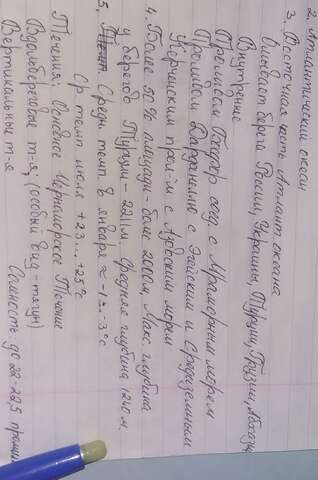 2. Атлантический океан
3. Восточная часть Атлант океана
Омывает берега России, Украины, Турции, Грузии, Абхази
Внутренние
Проливом Босфор соед. с Мраморным морем
Проливом Дарданеллы с Эгейским и Средиземным
Керченским прол-м с Азовским морем
4. Более 50% площади - более 2000м. Макс глубина
у берегов Турции - 2211м. Средняя глубина 1240м.
5. Средн темп в января ≈ -1..-3°C
Ср темп июля +23...+25°
Течения: Основное Черноморское Течение
Вдольбереговые т-я, (особый вид - тягун)
Вертикальные т-я Соленость до 22-22,5 промил